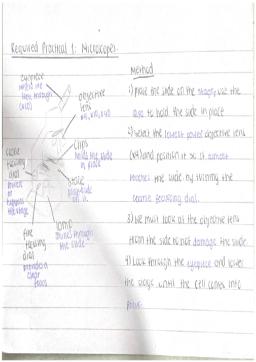 Required Practical 1: Microscopes.
eyepiece
objective
lens
x4, x10, x40
clips
holds the slide
in place
stage
lamp
shines through
the slide
coarse
focusing
dial
fine
focusing
dial
provides a
clear
focus
Method
1) place the slide on the stage, use the
clips to hold the slide in place
2) select the lowest power objective lens
(x4) and position it so it almost
touches the slide by turning the
coarse focusing dial.
3) We must look at the objective lens
from the side to not damage the slide
4) Look through the eyepiece and lower
the stage until the cell comes into
focus.